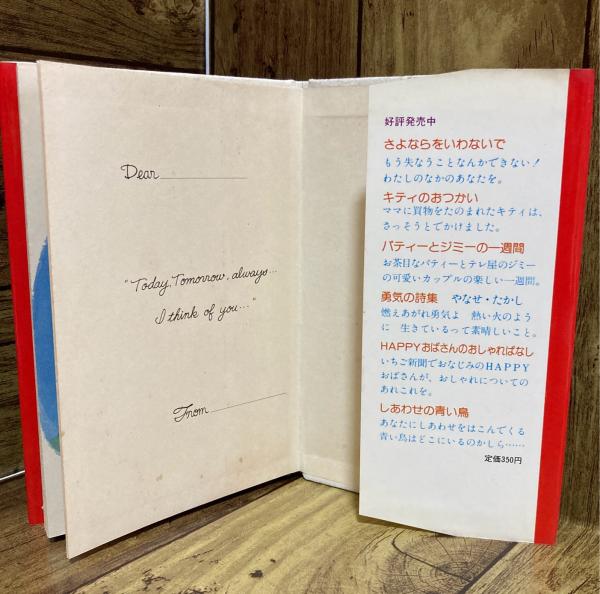 Dear
"Today, Tomorrow, always...
I think of you..."
From
好評発売中
さよならをいわないで
もう失なうことなんかできない!
わたしのなかのあなたを。
キティのおつかい
ママに買物をたのまれたキティは、
さっそうとでかけました。
パティーとジミーの一週間
お茶目なパティーとテレ屋のジミー
の可愛いカップルの楽しい一週間。
勇気の詩集 やなせ・たかし
燃えあがれ勇気よ 熱い火のよう
に 生きているって素晴しいこと。
HAPPYおばさんのおしゃればなし
いちご新聞でおなじみのHAPPY
おばさんが、おしゃれについての
あれこれを。
しあわせの青い鳥
あなたにしあわせをはこんでくる
青い鳥はどこにいるのかしら……
定価350円